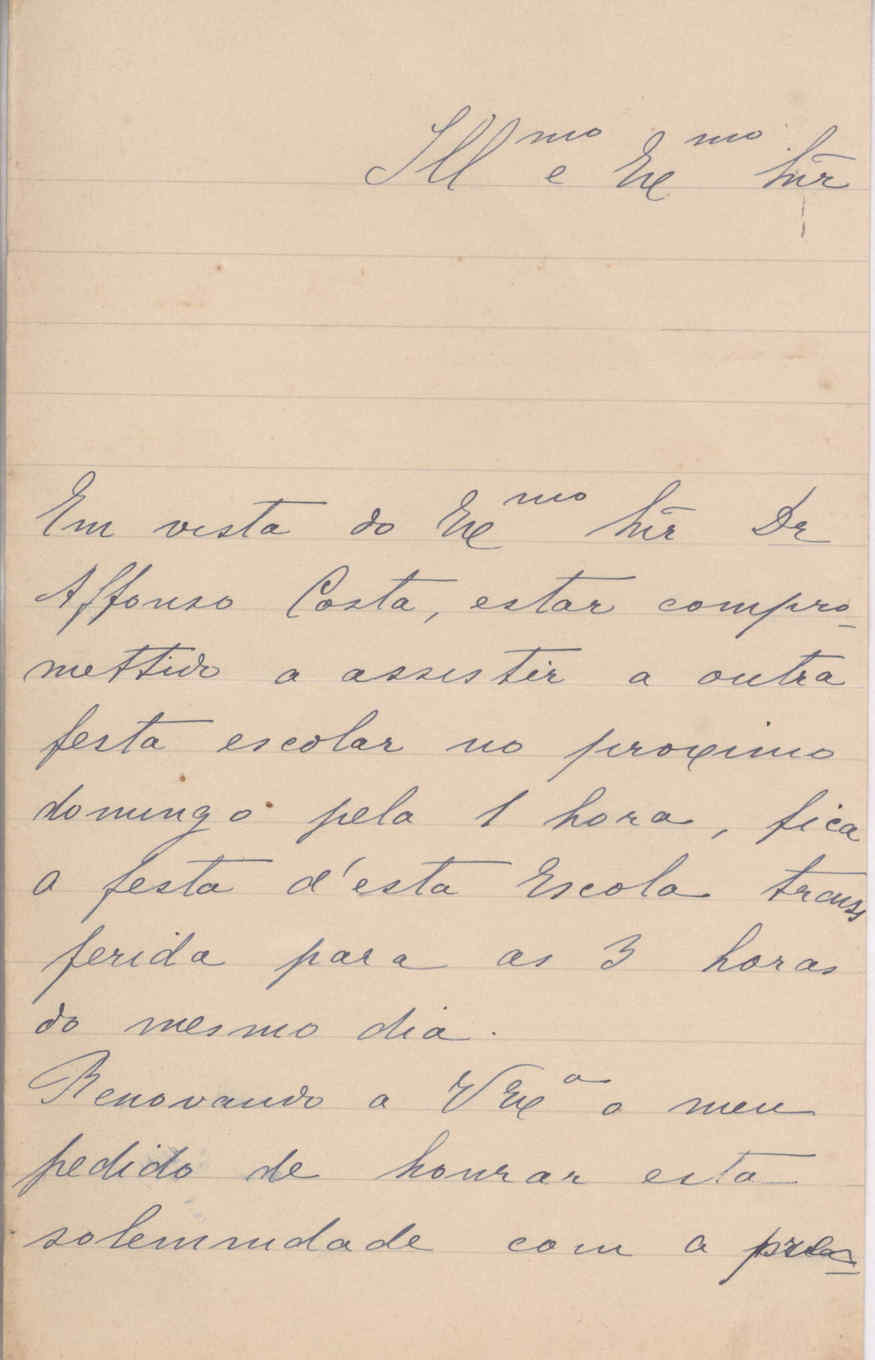 Ill.mo e Ex.mo Snr
Em vista do Ex.mo Snr Dr
Affonso Costa, estar compro-
mettido a assistir a outra
festa escolar no proximo
domingo pela 1 hora, fica
a festa d'esta Escola trans
ferida para as 3 horas
do mesmo dia.
Renovando a V Ex.a o meu
pedido de honrar esta
solemnidade com a